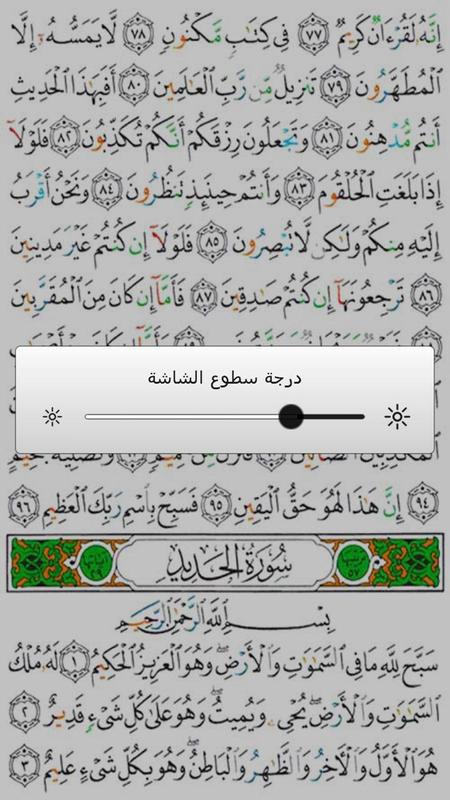 إِنَّهُ لَقُرْءَانٌ كَرِيمٌ ٧٧ فِي كِتَٰبٍ مَّكْنُونٍ ٧٨ لَّا يَمَسُّهُۥٓ إِلَّا
ٱلْمُطَهَّرُونَ ٧٩ تَنزِيلٌ مِّن رَّبِّ ٱلْعَٰلَمِينَ ٨٠ أَفَبِهَٰذَا ٱلْحَدِيثِ
أَنتُم مُّدْهِنُونَ ٨١ وَتَجْعَلُونَ رِزْقَكُمْ أَنَّكُمْ تُكَذِّبُونَ ٨٢ فَلَوْلَآ
إِذَا بَلَغَتِ ٱلْحُلْقُومَ ٨٣ وَأَنتُمْ حِينَئِذٍ تَنظُرُونَ ٨٤ وَنَحْنُ أَقْرَبُ
إِلَيْهِ مِنكُمْ وَلَٰكِن لَّا تُبْصِرُونَ ٨٥ فَلَوْلَآ إِن كُنتُمْ غَيْرَ مَدِينِينَ
٨٦ تَرْجِعُونَهَآ إِن كُنتُمْ صَٰدِقِينَ ٨٧ فَأَمَّآ إِن كَانَ مِنَ ٱلْمُقَرَّبِينَ
درجة سطوع الشاشة
٩٤ إِنَّ هَٰذَا لَهُوَ حَقُّ ٱلْيَقِينِ ٩٥ فَسَبِّحْ بِٱسْمِ رَبِّكَ ٱلْعَظِيمِ ٩٦
سُورَةُ الْحَدِيدِ
بِسْمِ ٱللَّهِ ٱلرَّحْمَٰنِ ٱلرَّحِيمِ
سَبَّحَ لِلَّهِ مَا فِي ٱلسَّمَٰوَٰتِ وَٱلْأَرْضِ ۖ وَهُوَ ٱلْعَزِيزُ ٱلْحَكِيمُ ١ لَهُۥ مُلْكُ
ٱلسَّمَٰوَٰتِ وَٱلْأَرْضِ ۖ يُحْيِۦ وَيُمِيتُ ۖ وَهُوَ عَلَىٰ كُلِّ شَيْءٍ قَدِيرٌ ٢
هُوَ ٱلْأَوَّلُ وَٱلْءَاخِرُ وَٱلظَّٰهِرُ وَٱلْبَاطِنُ ۖ وَهُوَ بِكُلِّ شَيْءٍ عَلِيمٌ ٣